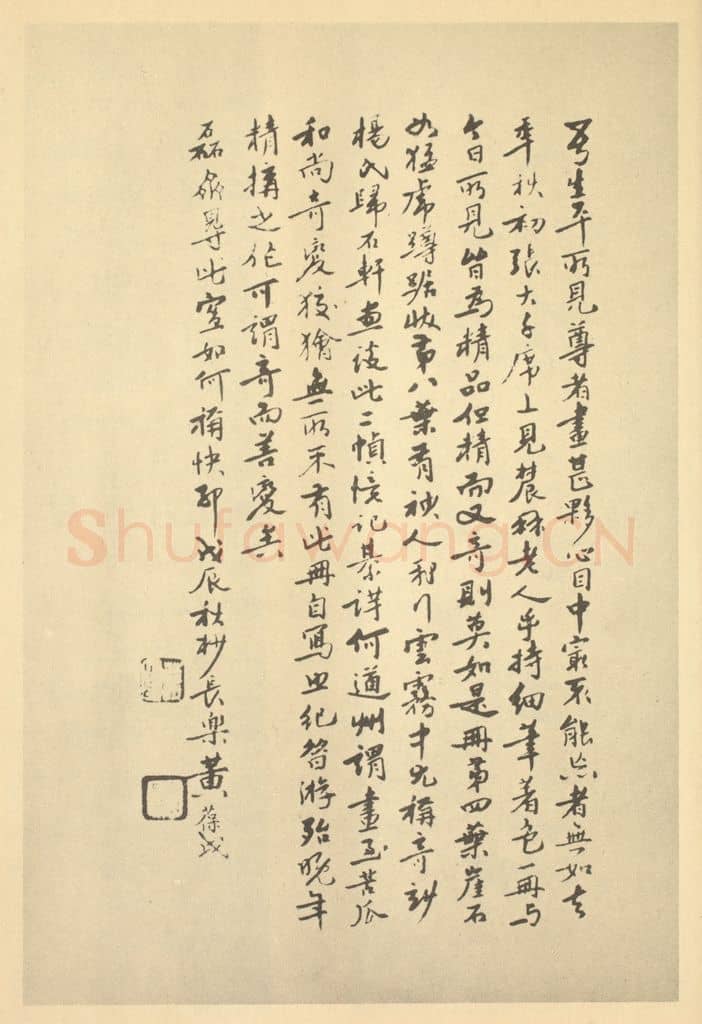 吾生平所見尊者畫甚夥心目中寂不能忘者無如去
年秋初張大千席上見農髯老人手持細筆著色一冊与
今日所見皆為精品但精而又奇則莫如是冊第四葉崖石
如猛虎蹲踞收第八葉有被人行雲霧中尤稱奇妙
楊氏歸石軒畫談此二幀億記綦詳何道州謂畫至苦瓜
和尚奇變狡獪無所不有此冊自寫世紀游殆晚年
精搆之作可謂奇而善變矣
磊盦尋此寔如何痛快耶戊辰秋杪長樂黃葆戉
Shufawang.CN